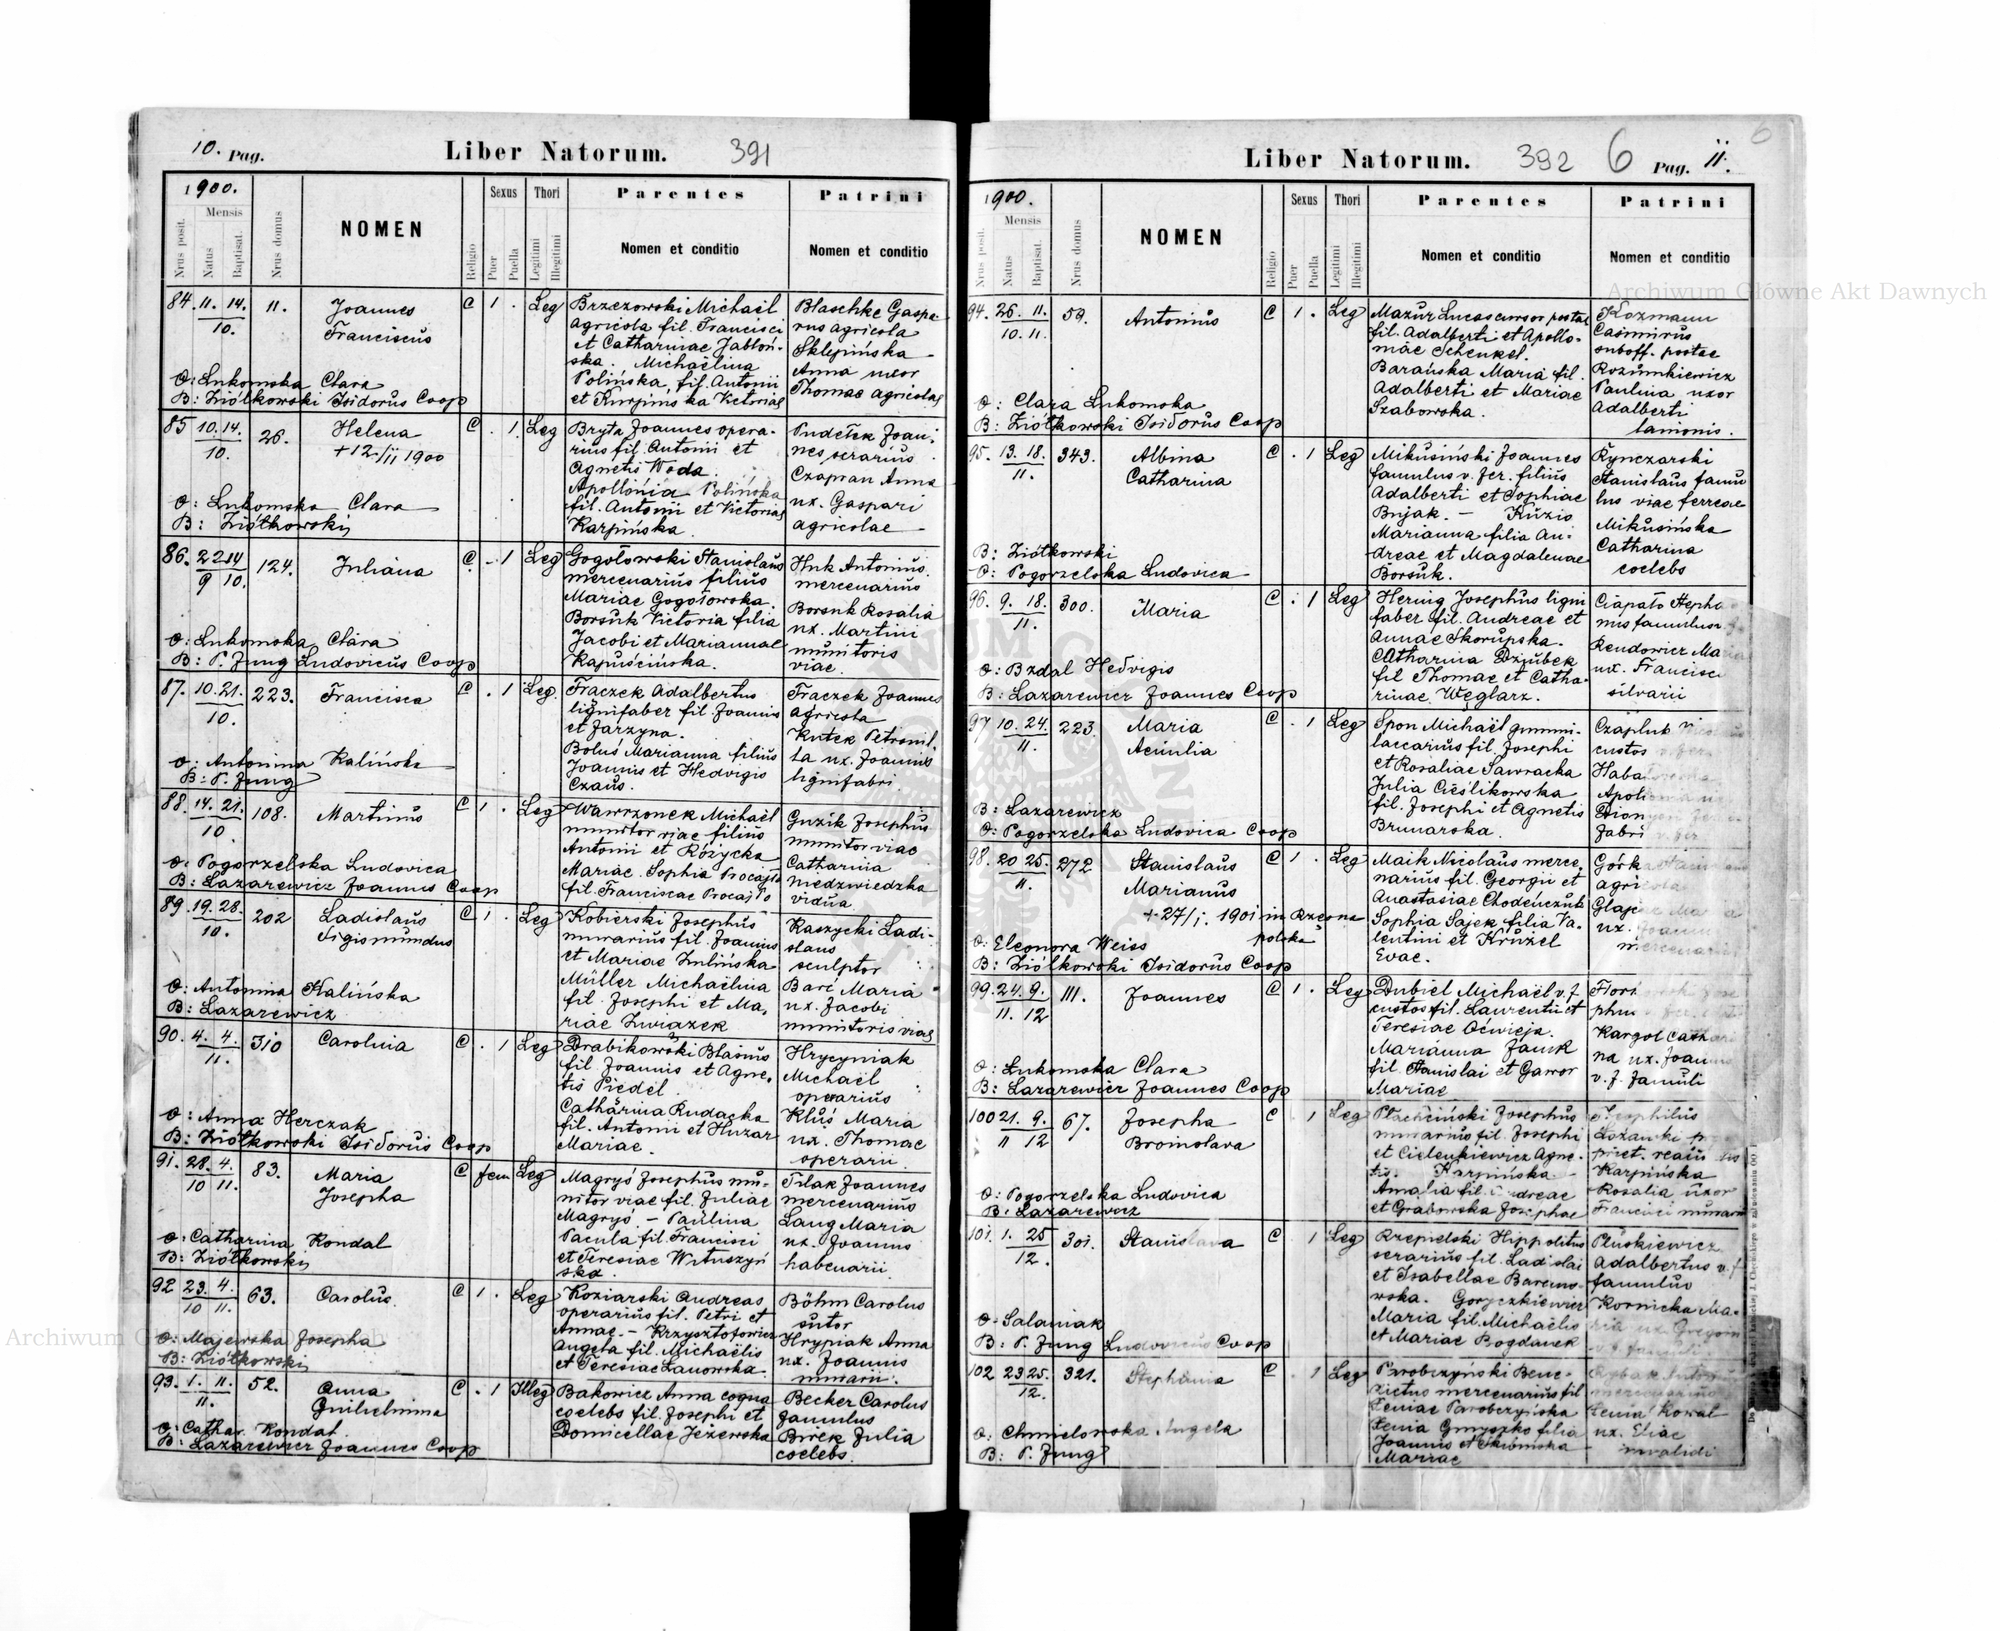 10. Pag.
Liber Natorum.
391
1900.
Nrus posit.
Mensis
Natus
Baptisat.
Nrus domus
NOMEN
Religio
Sexus
Puer
Puella
Thori
Legitimi
Illegitimi
Parentes
Nomen et conditio
Patrini
Nomen et conditio
84. 11. 14. 10. 11. Joannes Franciscus C 1 . Leg
Brzezowski Michaël
agricola fil. Francisci
et Catharinae Jabłoń-
ska. Michaëlina
Polińska, fil. Antonii
et Karpińska Victoriae
Blaschke Gaspa-
rus agricola
Sklepińska
Anna uxor
Thomae agricolae
O: Lukomska Clara
B: Ziółkowski Isidorus Coop
85 10. 14. 10. 26. Helena C . 1 Leg
+ 12/11 1900
Bryta Joannes opera-
rius fil. Antonii et
Agnetis Woda.
Apollónia Polińska
fil. Antonii et Victoriae
Karpińska.
Pudełek Joan-
nes serarius
Czapran Anna
ux. Gaspari
agricolae
O: Lukomska Clara
B: Ziółkowski
86. 22 14 9 10. 124. Juliána C . 1 Leg
Gogołowski Stanislaus
mercenarius filius
Mariae Gogołowska.
Borsuk Victoria filia
Jacobi et Mariannae
Kapuścińska.
Huk Antonius
mercenarius
Borsuk Rosalia
ux. Martini
munitoris
viae
O: Lukomska Clara
B: P. Jung Ludovicus Coop
87. 10. 21. 10. 223. Francisca C . 1 Leg.
Frączek Adalbertus
lignifaber fil. Joannis
et Jarzyna.
Boluś Marianna filius
Joannis et Hedvigis
Czaus.
Frączek Joannes
agricola
Kutek Petronil-
la ux. Joannis
lignifabri.
O: Antonina Kalińska
B: P. Jung
88. 14. 21. 10 108. Martinus C 1 . Leg
Wawrzonek Michaël
munitor viae filius
Antonii et Różycka
Mariae. Sophia Procajło
fil. Franciscae Procajło
Guzik Josephus
munitor viae
Catharina
Niedzwiedzka
vidua
O: Pogorzelska Ludovica
B: Lazarewicz Joannes Coop
89. 19. 28. 10. 202 Ladislaus Sigismundus C 1 . Leg
Kobierski Josephus
murarius fil. Joannis
et Mariae Zulińska
Müller Michaëlina
fil. Josephi et Ma-
riae Związek
Raszycki Ladi-
slaus
sculptor
Barć Maria
ux. Jacobi
munitoris viae
O: Antonina Kalińska
B: Lazarewicz
90. 4. 4. 11. 310 Carolina C . 1 Leg
Drabikowski Blasius
fil Joannis et Agne-
tis Piedel.
Cathárina Rudacka
fil. Antonii et Huzar
Mariae.
Hrycyniak
Michaël
operarius
Kluś Maria
ux. Thomae
operarii.
O: Anna Herczak
B: Ziółkowski Isidorus Coop
91. 28. 4. 10 11. 83. Maria Josepha C fem Leg
Magryś Josephus mu-
nitor viae fil. Juliae
Magryś. - Paulina
Pacula fil. Francisci
et Teresiae Wituszyń
ska.
Pilak Joannes
mercenarius
Laug Maria
ux. Joannis
habenarii.
O: Catharina Kondal
B: Ziółkowski
92 23. 4. 10 11. 63. Carolus. C 1 . Leg
Koziarski Andreas
operarius fil. Petri et
Annae. - Krzysztofowicz
Angela fil. Michaëlis
et Teresiae Lanowska.
Böhm Carolus
sutor
Hrypiak Anna
ux. Joannis
murarii.
O: Majewska Josepha
B: Ziółkowski
93. 1. 11. 11. 52. Anna Guilielmina C . 1 Illeg
Bakowicz Anna coqua
coelebs fil. Josephi et
Domicellae Jeżewska
Becker Carolus
famulus
Birek Julia
coelebs.
O: Cathar. Kondal.
B: Lazarewicz Joannes Coop
Liber Natorum.
392 6 Pag. 11.
6
1900.
Nrus posit.
Mensis
Natus
Baptisat.
Nrus domus
NOMEN
Religio
Sexus
Puer
Puella
Thori
Legitimi
Illegitimi
Parentes
Nomen et conditio
Patrini
Nomen et conditio
94. 26. 11. 10. 11. 52. Antonius C 1 . Leg
Mazur Lucas cursor postae
fil. Adalberti et Apollo-
niae Schenkel.
Barańska Maria fil.
Adalberti et Mariae
Szabowska.
Kozmann
Casimirus
suboff. postae
Rozumkiewicz
Paulina uxor
Adalberti
lanionis.
O: Clara Lukomska
B: Ziółkowski Isidorus Coop
95. 13. 18. 11. 343. Albina Catharina C . 1 Leg
Mikusiński Joannes
famulus v. fer. filius
Adalberti et Sophiae
Bujak. - Kuzio
Marianna filia An-
dreae et Magdalenae
Borsuk.
Rynczarski
Stanislaus famu
lus viae ferreae
Mikusińska
Catharina
coelebs
B: Ziółkowski
O: Pogorzelska Ludovica
96. 9. 18. 11. 300. Maria C . 1 Leg
Hering Josephus ligni
faber fil. Andreae et
Annae Skorupska.
Catharina Dziubek
fil Thomae et Catha-
rinae Węglarz.
Ciąpało Stepha
nus famulus
Rendowicz Maria
ux. Francisci
silvarii
O: Bzdal Hedvigis
B: Lazarewicz Joannes Coop
97 10. 24. 11. 223. Maria Aemilia C . 1 Leg
Spon Michaël gummi-
laccarius fil. Josephi
et Rosaliae Sawracka
Julia Cieślikowska
fil. Josephi et Agnetis
Brunarska.
Czaplub
custos
Haba
Apoli
Dion
fabri
B: Lazarewicz
O: Pogorzelska Ludovica Coop
98. 20 25. 11. 272 Stanislaus Marianus C 1 . Leg
+ 27/1. 1901 in Rzesna polska
Maik Nicolaus merce-
narius fil. Georgii et
Anastasiae Chodeńczuk
Sophia Sajek filia Va-
lentini et Kruzel
Evae.
Górka
agricola
Glaje
ux.
mercenarii
O: Eleonora Weiss
B: Ziółkowski Isidorus Coop
99. 24. 9. 11. 12 111. Joannes C 1 . Leg
Dubiel Michaël v. f.
custos fil. Laurentii et
Teresiae Oćwieja.
Marianna Janik
fil. Stanislai et Gawor
Mariae
Flori
phus
Kargol Catha
na ux. Joan
v. f. famuli
O: Lukomska Clara
B: Lazarewicz Joannes Coop
100 21. 9. 11 12 67. Josepha Bronislava C . 1 Leg
Josephus
murarius fil. Josephi
et Cielenkiewicz Agne-
tis. Karpińska
Amalia fil. Andreae
et Grabowska Josephae
Theophilus
Karpińska
Rosalia uxor
Francisci murarii
O: Pogorzelska Ludovica
B: Lazarewicz
101. 1. 25 12. 301. Stanislava C . 1 Leg
Rzepielski Hippolitus
serarius fil. Ladislai
et Isabellae Baranow-
wska. Goryczkiewicz
Maria fil. Michaëlis
et Mariae Bogdanek
Pluskiewicz
Adalbertus v. f
famulus
Kornicka Ma-
ria ux. Gregorii
v. f. famuli.
O: Salaniak
B: P. Jung Ludovicus Coop
102 23 25. 12. 321. Stephánia C . 1 Leg
Paroboczyński Bene-
dictus mercenarius fil
Xeniae Paroboczyńska
Xenia Gmyszko filia
Joannis et
Mariae
Rybak Anton
mercenarius
Xenia Kowal
ux. Eliae
invalidi
O: Chmielowska Angela
B: P. Jung
Archiwum Główne Akt Dawnych
Archiwum Główne Akt Dawnych